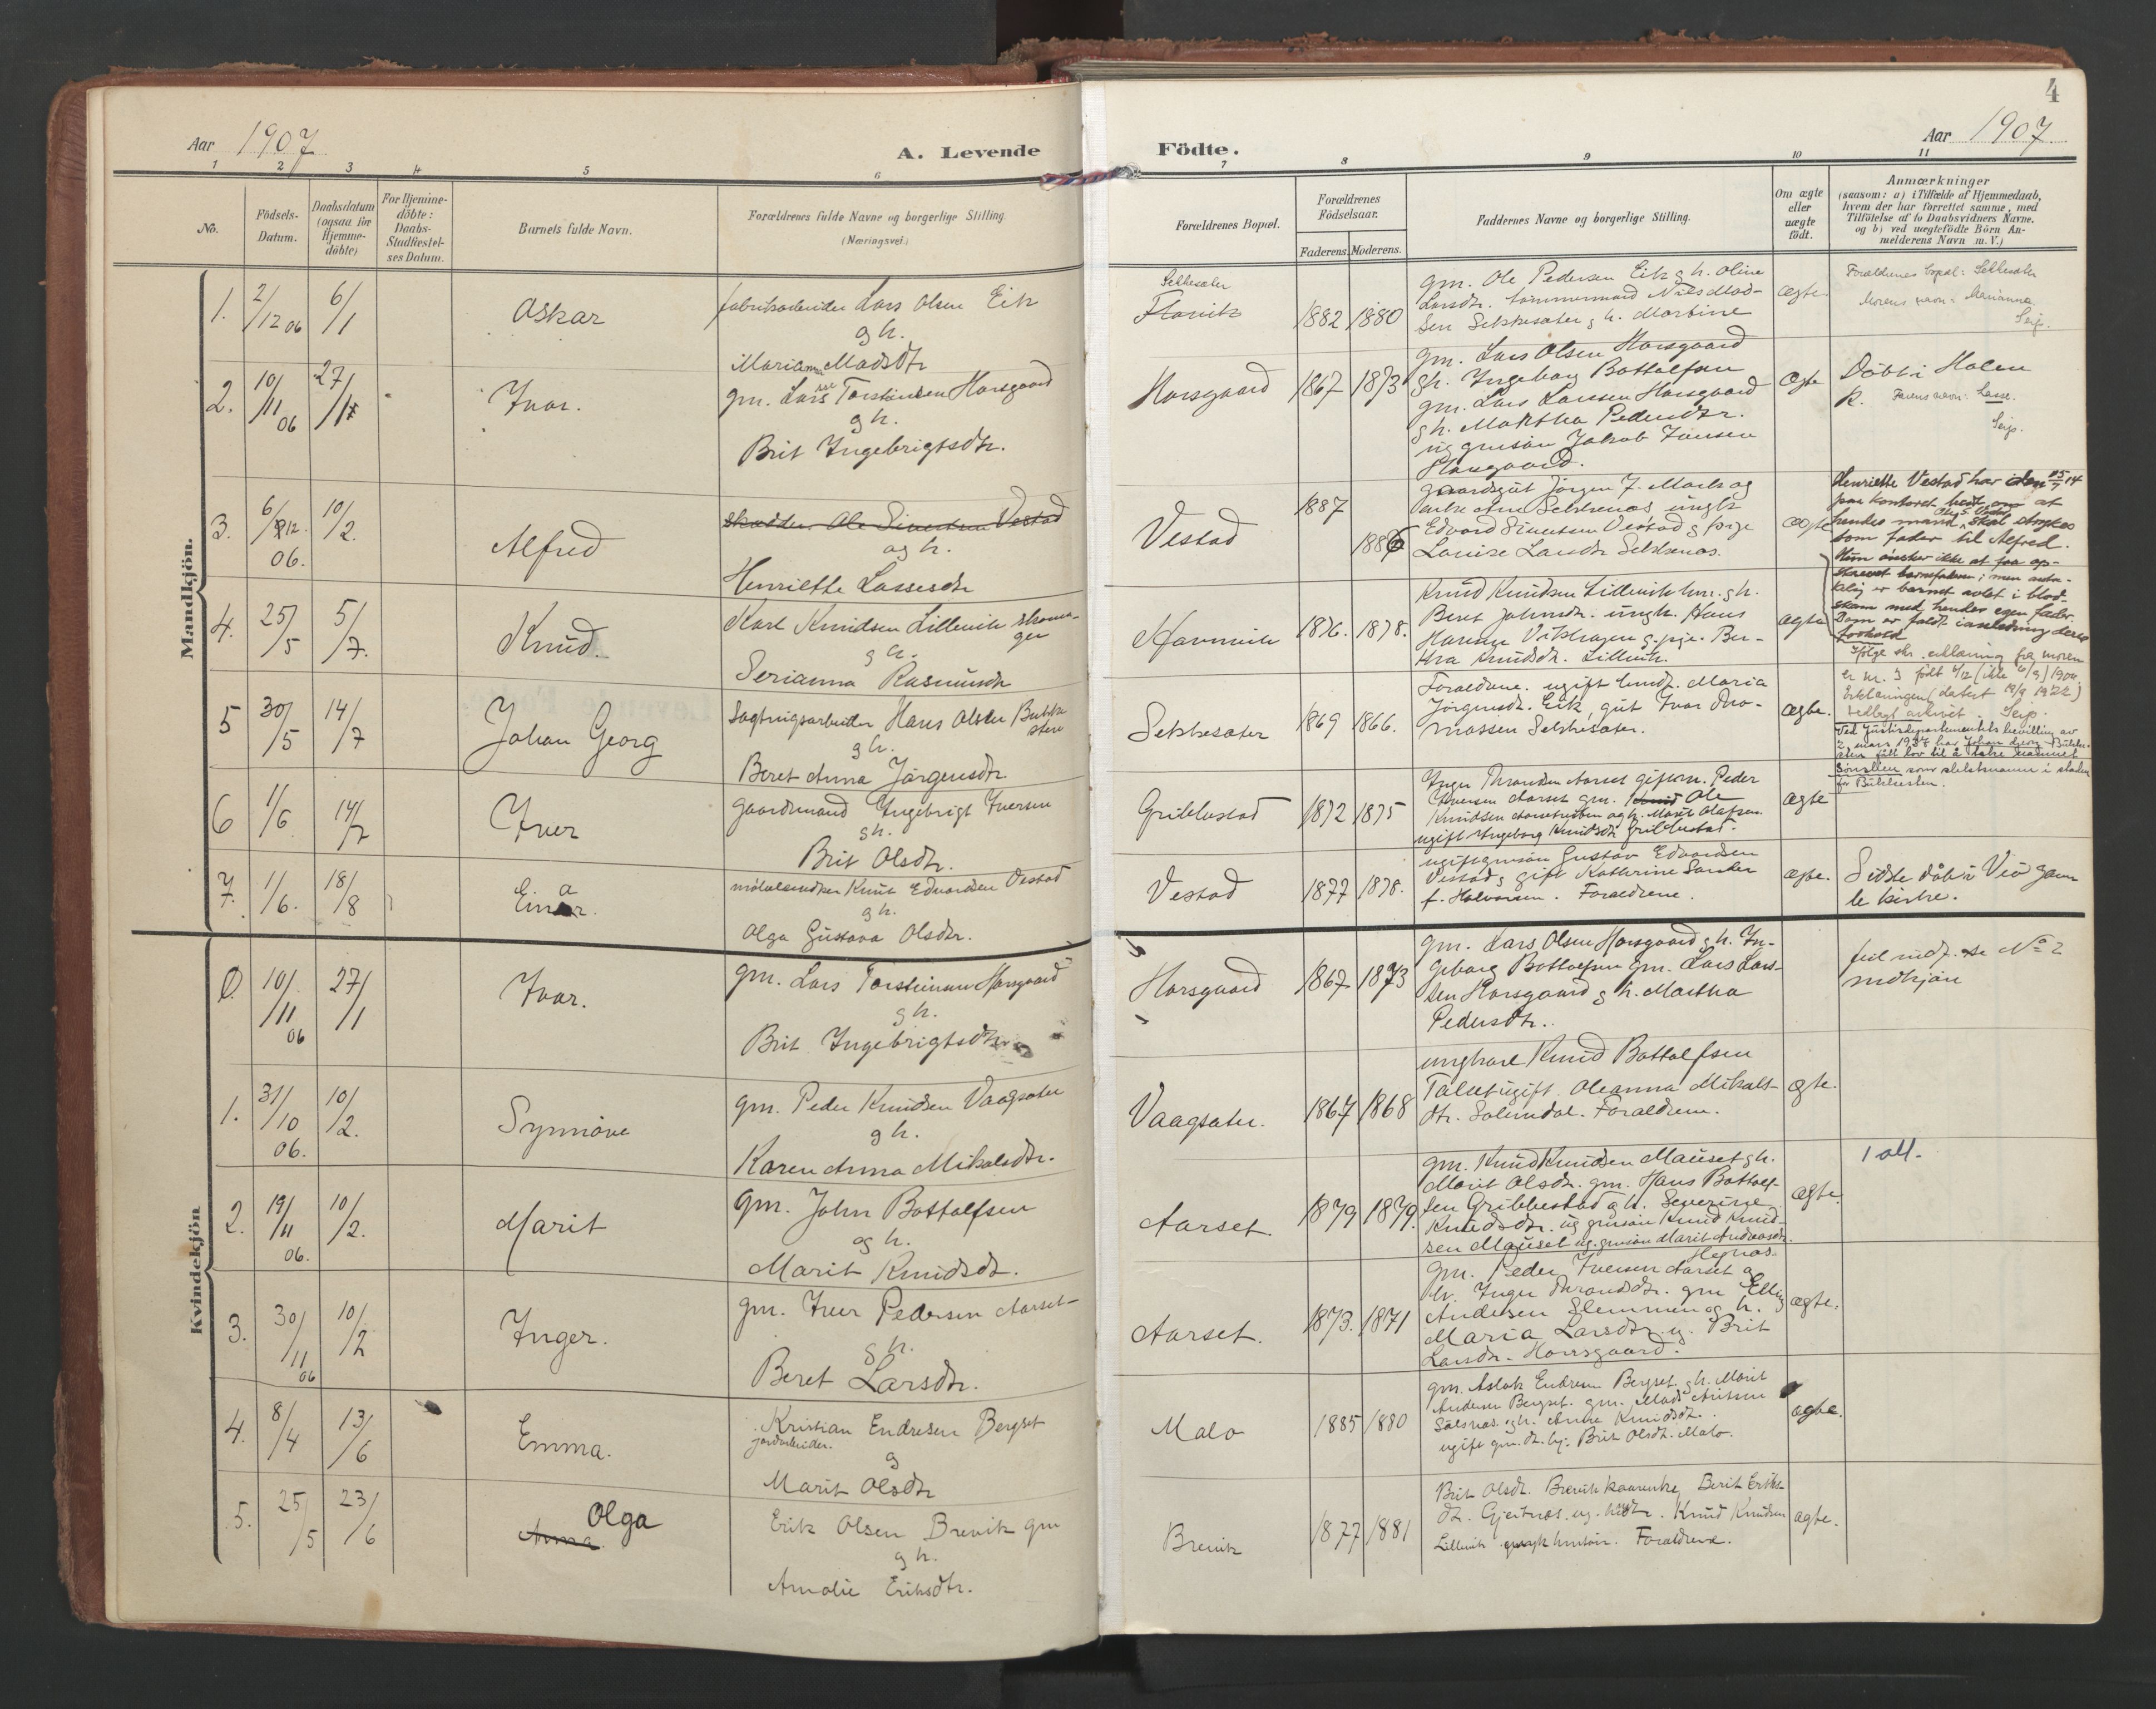 4
Aar 1907
A. Levende
Födte.
Aar 1907
1 2 3 4 5 6 7 8 9 10 11
No.
Födsels-
Datum.
Daabsdatum
(ogsaa for
Hjemme-
döbte)
For Hjemme-
döbte:
Daabs-
Stadfæstel-
ses Datum.
Barnets fulde Navn.
Forældrenes fulde Navne og borgerlige Stilling.
(Næringsvei.)
Forældrenes Bopæl.
Forældrenes
Födselsaar.
Faderens. Moderens.
Faddernes Navne og borgerlige Stilling.
Om ægte
eller
uægte
födt.
Anmærkninger
(saasom: a) i Tilfælde af Hjemmedaab,
hvem der har forrettet samme, med
Tilföielse af to Daabsvidners Navne,
og b) ved uægtefödte Börn An-
melderens Navn m. V.)
Mandkjön.
1. 2/12 06 6/1
Oskar
fabrikarbeider Lars Olsen Eik
g h.
Marianna Madsdtr
Sekkesæter
Flovik
1882 1880
gm. Ole Pedersen Eik g h. Oline
Larsdtr. tømmermand Nils Mad-
sen Sekkesæter g h. Martine
ægte.
Forældrenes bopæl: Sekkesæter
Morens navn: Marianna.
Seip.
2. 10/11 06 27/1
Ivar.
gm. Lars Torstensen Horsgaard
g h.
Brit Ingebrigtsdtr.
Horsgaard
1867 1873
gm. Lars Olsen Horsgaard
g h. Ingeborg Bottolfsen
gm. Lars Larsen Horsgaard
g h. Martha Pedersdtr.
ug gmsøn Jakob Jansen
Horsgaard.
ægte
Døbt i Holen
K. Farens navn: Lasse.
Seip.
3. 6/12. 06. 10/2.
Alfred
Ole Sivertsen Vestad
og h.
Henriette Lassesdtr
Vestad
1887
1886
gaardsgut Jørgen J. Mork og
Sekkenæs, ungk
Edvard Sivertsen Vestad g pige
Louise Larsdtr Sekkenæs.
ægte
Henriette Vestad har iden 25/7 14
paa kontoret bedt om at
hendes mand Ole S. Vestad skal strykes
som fader til Alfred.
Hun ønsker ikke at faa op-
skrevet barnefaderen; men anta-
kelig er barnet avlet i blod-
skam med hendes egen fader.
Dom er faldt i anledning dette
forhold
Ifølge skr. erklæring fra moren
er nr. 3 født 6/12 (ikke 6/9) 1906.
Erklæringen (datert 19/9 1922)
vedlagt arkivet. Seip.
4. 25/5 5/7.
Knud.
Karl Knudsen Lillevik skoma-
ger
g h.
Serianna Rasmusdtr
1876. 1878.
Knud Knudsen Lillevik hm. g h.
Beret Johnsdtr. ungk. Hans
Hansen Vikhagen g. pige. Ber-
tha Knudsdtr. Lillevik.
ægte
5 30/5 14/7
Johan Georg
Sagbrugsarbeider Hans Olsen Bukke
sten
g h.
Beret Anna Jørgensdtr
Sekkesæter
1869 1866.
Forældrene. ugift Maria
Jørgensdtr. Eik, gut Ivar Tho-
massen Sekkesæter.
ægte.
Ved Justisdepartementets bevilling av
2 mars 1937 har Johan Georg Bukke-
sten fått lov til å ta navnet
som slektsnavn i steden
for Bukkesten.
6 1/6 14/7
Iver
gaardmand Ingebrigt Iversen
g h.
Brit Olsdtr.
Gribbestad
1872 1875
Inger Thronden Aarset giftem. Peder
Iversen Aarset gm. Ole
Knudsen Aarset og h. Marit Olafsen
ugift Ingeborg Knudsdtr Gribbestad.
ægte
7. 1/6. 18/8
Einar.
Knut Edvardsen Vestad
g h.
Olga Gustava Olsdtr.
Vestad
1877 1878.
ugift gmsøn Gustav Edvardsen
Vestad g gift Kathrine
f. Halvorsen. Forældrene.
ægte.
Sidste dåb i Veø gam-
le kirke.
Kvindekjön
0. 10/11 06 27/1
Ivar.
gm. Lars Torstensen Horsgaard
g h.
Brit Ingebrigtsdtr
Horsgaard
1867 1873
gm. Lars Olsen Horsgaard g h. In-
geborg Bottolfsen gm. Lars Lars-
sen Horsgaard g h. Martha
Pedersdtr.
feil indf. se No 2
mdkjøn
1. 31/10 06. 10/2.
Synnöve
gm. Peder Knudsen Vaagsæter
g h.
Karen Anna Mikalsdtr.
Vaagsæter.
1867 1868
ungkarl Knud Bottolfsen
Talset ugift. Oleanna Mikals-
dtr. Solemdal. Forældrene.
ægte.
2. 19/11 06. 10/2.
Marit
gm. John Bottolfsen
og h.
Marit Knudsdt.
Aarset.
1879 1879.
gm. Knud Knudsen Mauset g h.
Marit Olsdtr. gm. Hans Bottolf-
sen Gribbestad g h. Severine
Knudsdtr. ug gmsøn Knud Knud-
sen Mauset ug. gmsøn Marit Andreasdtr.
Hegnæs.
ægte.
1 att.
3. 30/11 06 10/2
Inger.
gm. Iver Pedersen Aarset
g h.
Beret Larsdtr.
Aarset.
1873. 1871
gm. Peder Iversen Aarset g
h. Inger Throndsdtr. gm Elling
Andersen Slemmen og h.
Maria Larsdtr. ug. Brit
Larsdtr. Horsgaard.
ægte.
4. 8/4 13/6
Emma.
Kristian Endresen Bergset
jordarbeider.
g
Marit Olsdtr
Malo
1885 1880
gm. Aslak Endresen Bergset. g h. Marit
Andersen Bergset. gm. Mads
Sølsnæs. g h. Anne Knudsdtr.
ugift gm. dt. Brit Olsdt. Malo.
ægte.
5. 25/5 23/6
Olga
Anna.
Erik Olsen Brevik gm
g h.
Amalie Eriksdtr.
Brevik
1877 1881
Brit Olsdt. Brevik Berit Eriks-
dt. Gjeitnæs. Knud Knudsen
Lillevik. Forældrene.
ægte.